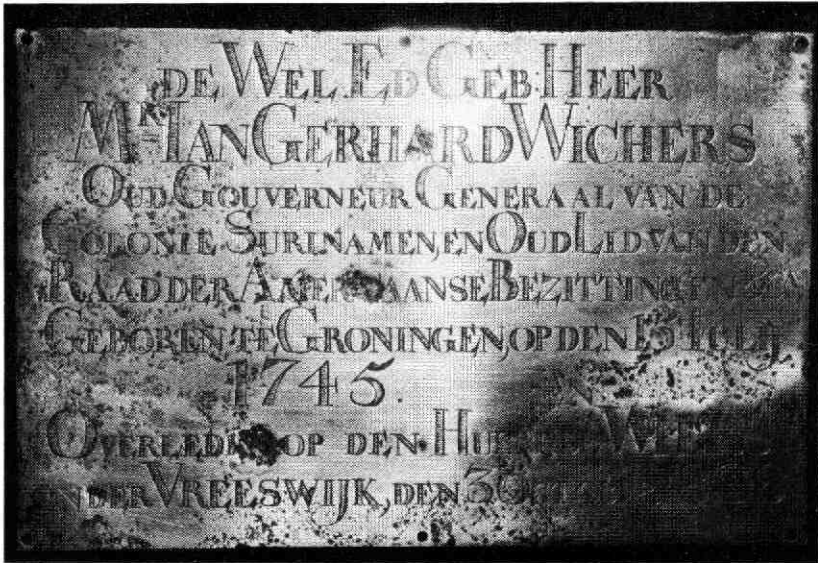 DE WEL ED GEB: HEER
MR. IAN GERHARD WICHERS
OUD GOUVERNEUR GENERAAL VAN DE
COLONIE SURINAMEN, EN OUD LID VAN DEN
RAAD DER BEZITTINGEN
GEBOREN TE GRONINGEN, OP DEN IULIJ
1745.
OVERLEDEN OP DEN
ONDER VREESWIJK, DEN